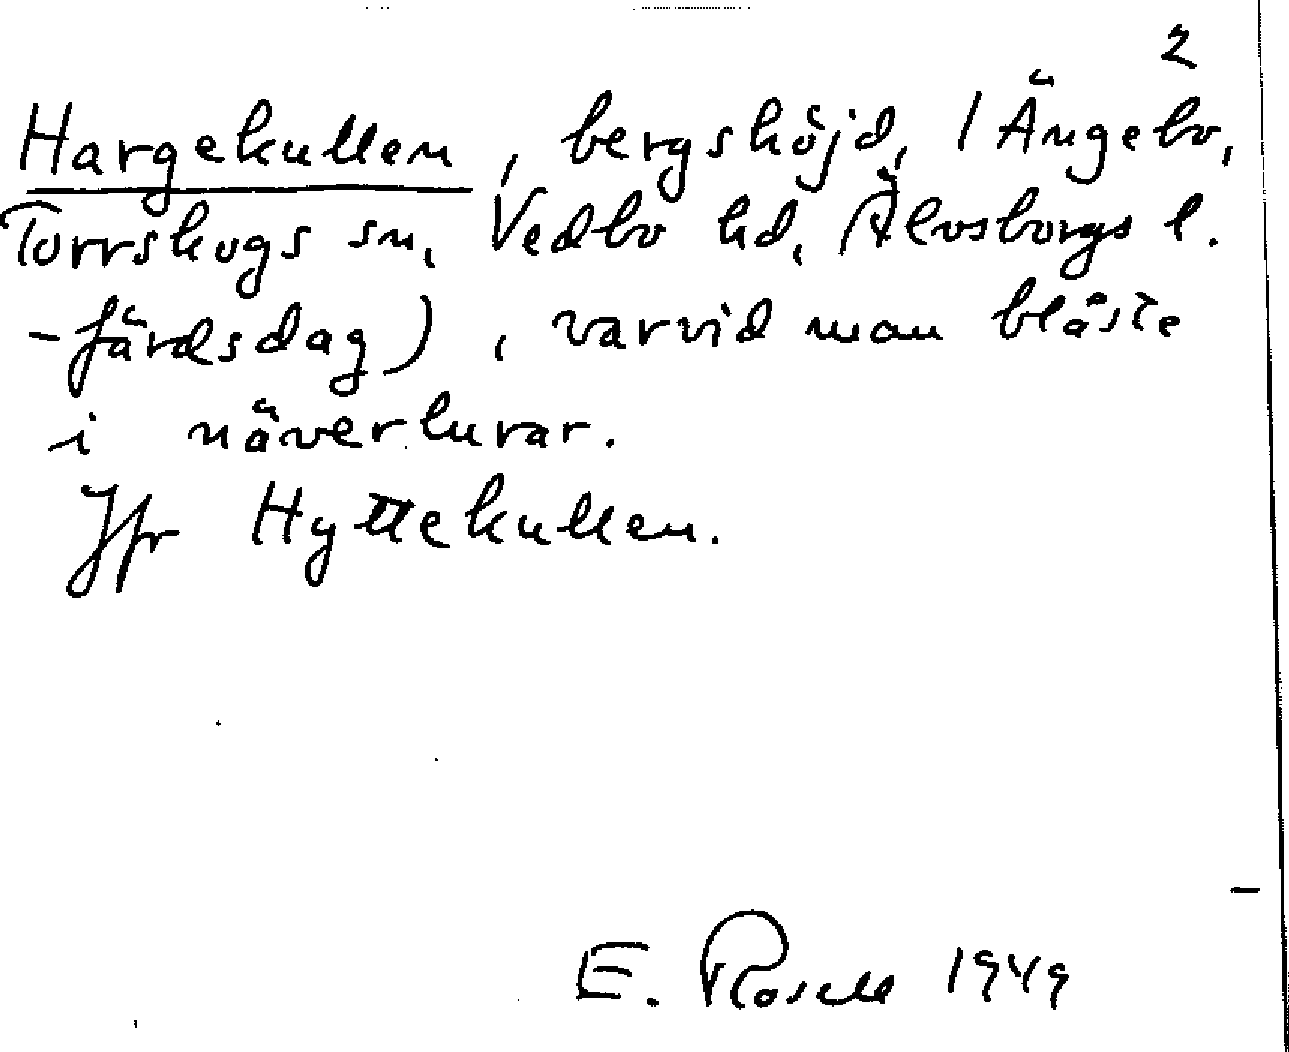 2
Hargekullen, bergshöjd, / Ängebo,
Torrskogs sn, Vedbo hd, Älvsborgs l.
-färdsdag), varvid man blåste
i näverlurar.
Jfr Hyttekullen.
E. Rosell 1949